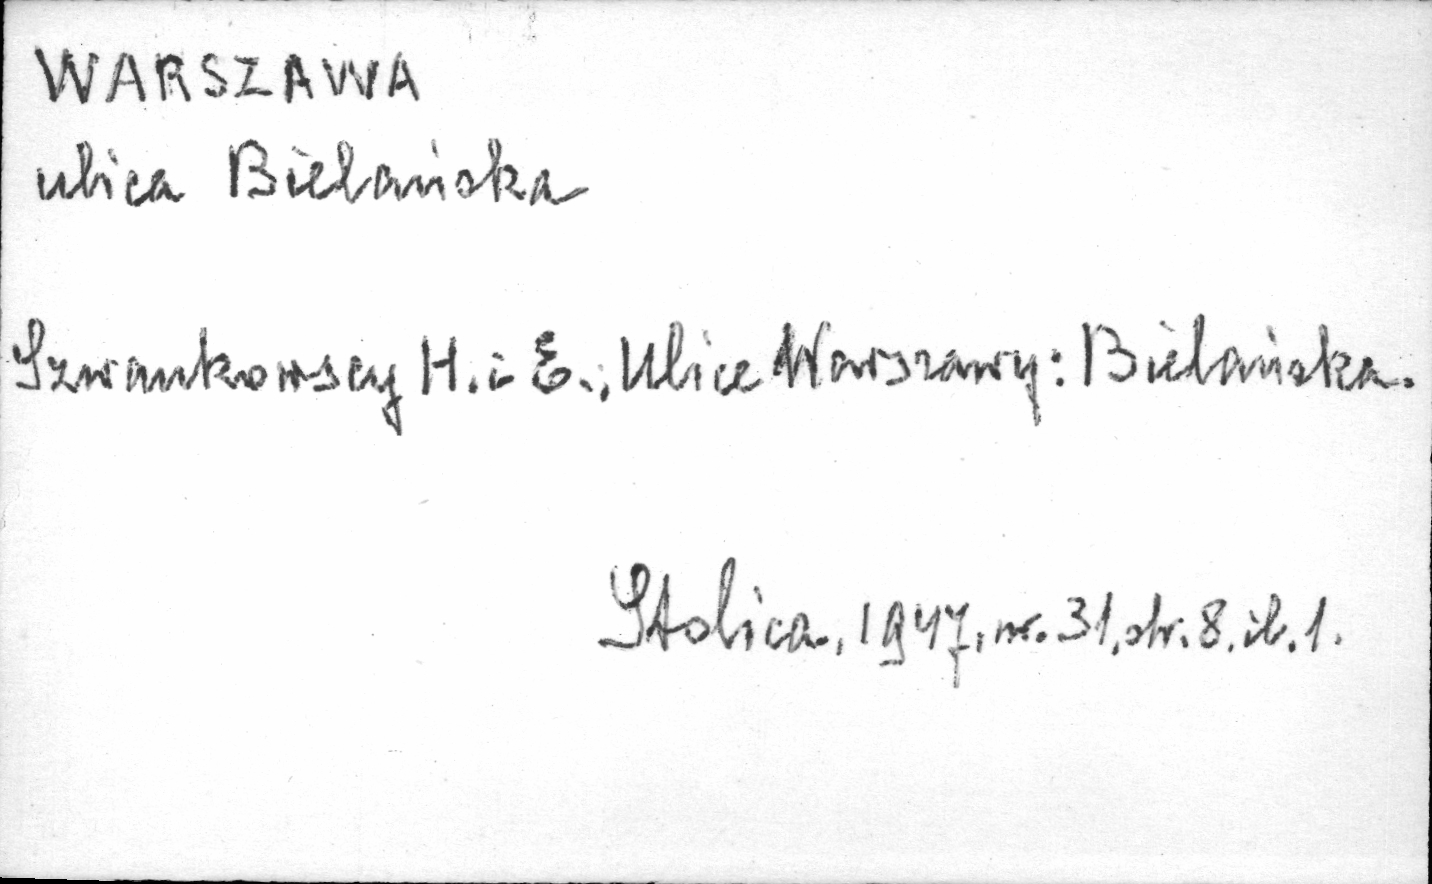 WARSZAWA
ulica Bielańska
Szwankowscy H. i E., Ulice Warszawy: Bielańska.
Stolica, 1947, nr. 31, str. 8, il. 1.